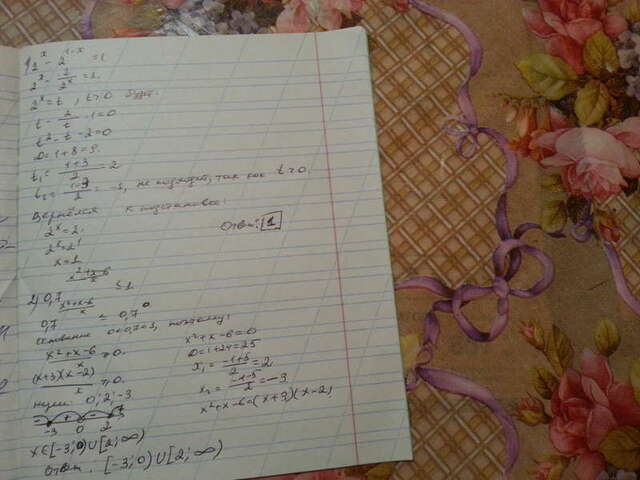 1) 2^x - 2^(1-x) = 1
2^x - 2/2^x = 1.
2^x = t, t>0
t - 2/t - 1 = 0
t² - t - 2 = 0
D = 1 + 8 = 9.
t₁ = (1+3)/2 = 2
t₂ = (1-3)/2 = -1, не подходит, так как t>0.
Вернёмся к подстановке:
2^x = 2.
2^x = 2¹
x = 1
Ответ: 1
2) 0,7^((x²+x-6)/x) ≤ 1
0,7^((x²+x-6)/x) ≤ 0,7^0
основание 0<0,7<1, поэтому:
(x²+x-6)/x ≥ 0.
((x+3)(x-2))/x ≥ 0.
нули: 0; 2; -3
- + - +
-3 0 2
x∈[-3;0)∪[2;∞)
Ответ: [-3;0)∪[2;∞)
x²+x-6=0
D=1+24=25
x₁ = (-1+5)/2 = 2
x₂ = (-1-5)/2 = -3
x²+x-6=(x+3)(x-2)